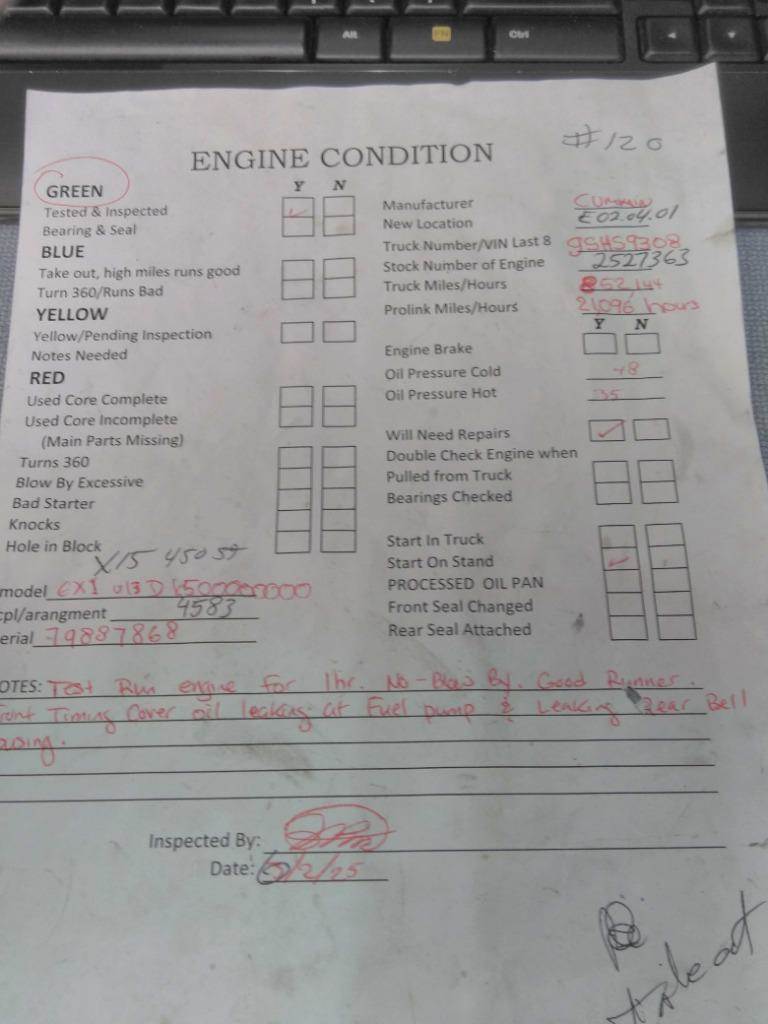 Alt
FN
Ctrl
#120
ENGINE CONDITION
GREEN
Y N
Tested & Inspected
Bearing & Seal
BLUE
Take out, high miles runs good
Turn 360/Runs Bad
YELLOW
Yellow/Pending Inspection
Notes Needed
RED
Used Core Complete
Used Core Incomplete
(Main Parts Missing)
Turns 360
Blow By Excessive
Bad Starter
Knocks
Hole in Block
X15 450 ST
model
cpl/arangment 4583
erial 79887868
Manufacturer Cummin
New Location E02.04.01
Truck Number/VIN Last 8 GSHS9308
Stock Number of Engine 2527363
Truck Miles/Hours 852,144
Prolink Miles/Hours 21096 hours
Y N
Engine Brake
Oil Pressure Cold 48
Oil Pressure Hot 35
Will Need Repairs
Double Check Engine when
Pulled from Truck
Bearings Checked
Start In Truck
Start On Stand
PROCESSED OIL PAN
Front Seal Changed
Rear Seal Attached
OTES: Test Run engine for 1hr. No-Blow By. Good Runner.
ront Timing Cover oil leaking at Fuel pump & Leaking Rear Bell
ousing.
Inspected By:
Date: 5/2/25
take out